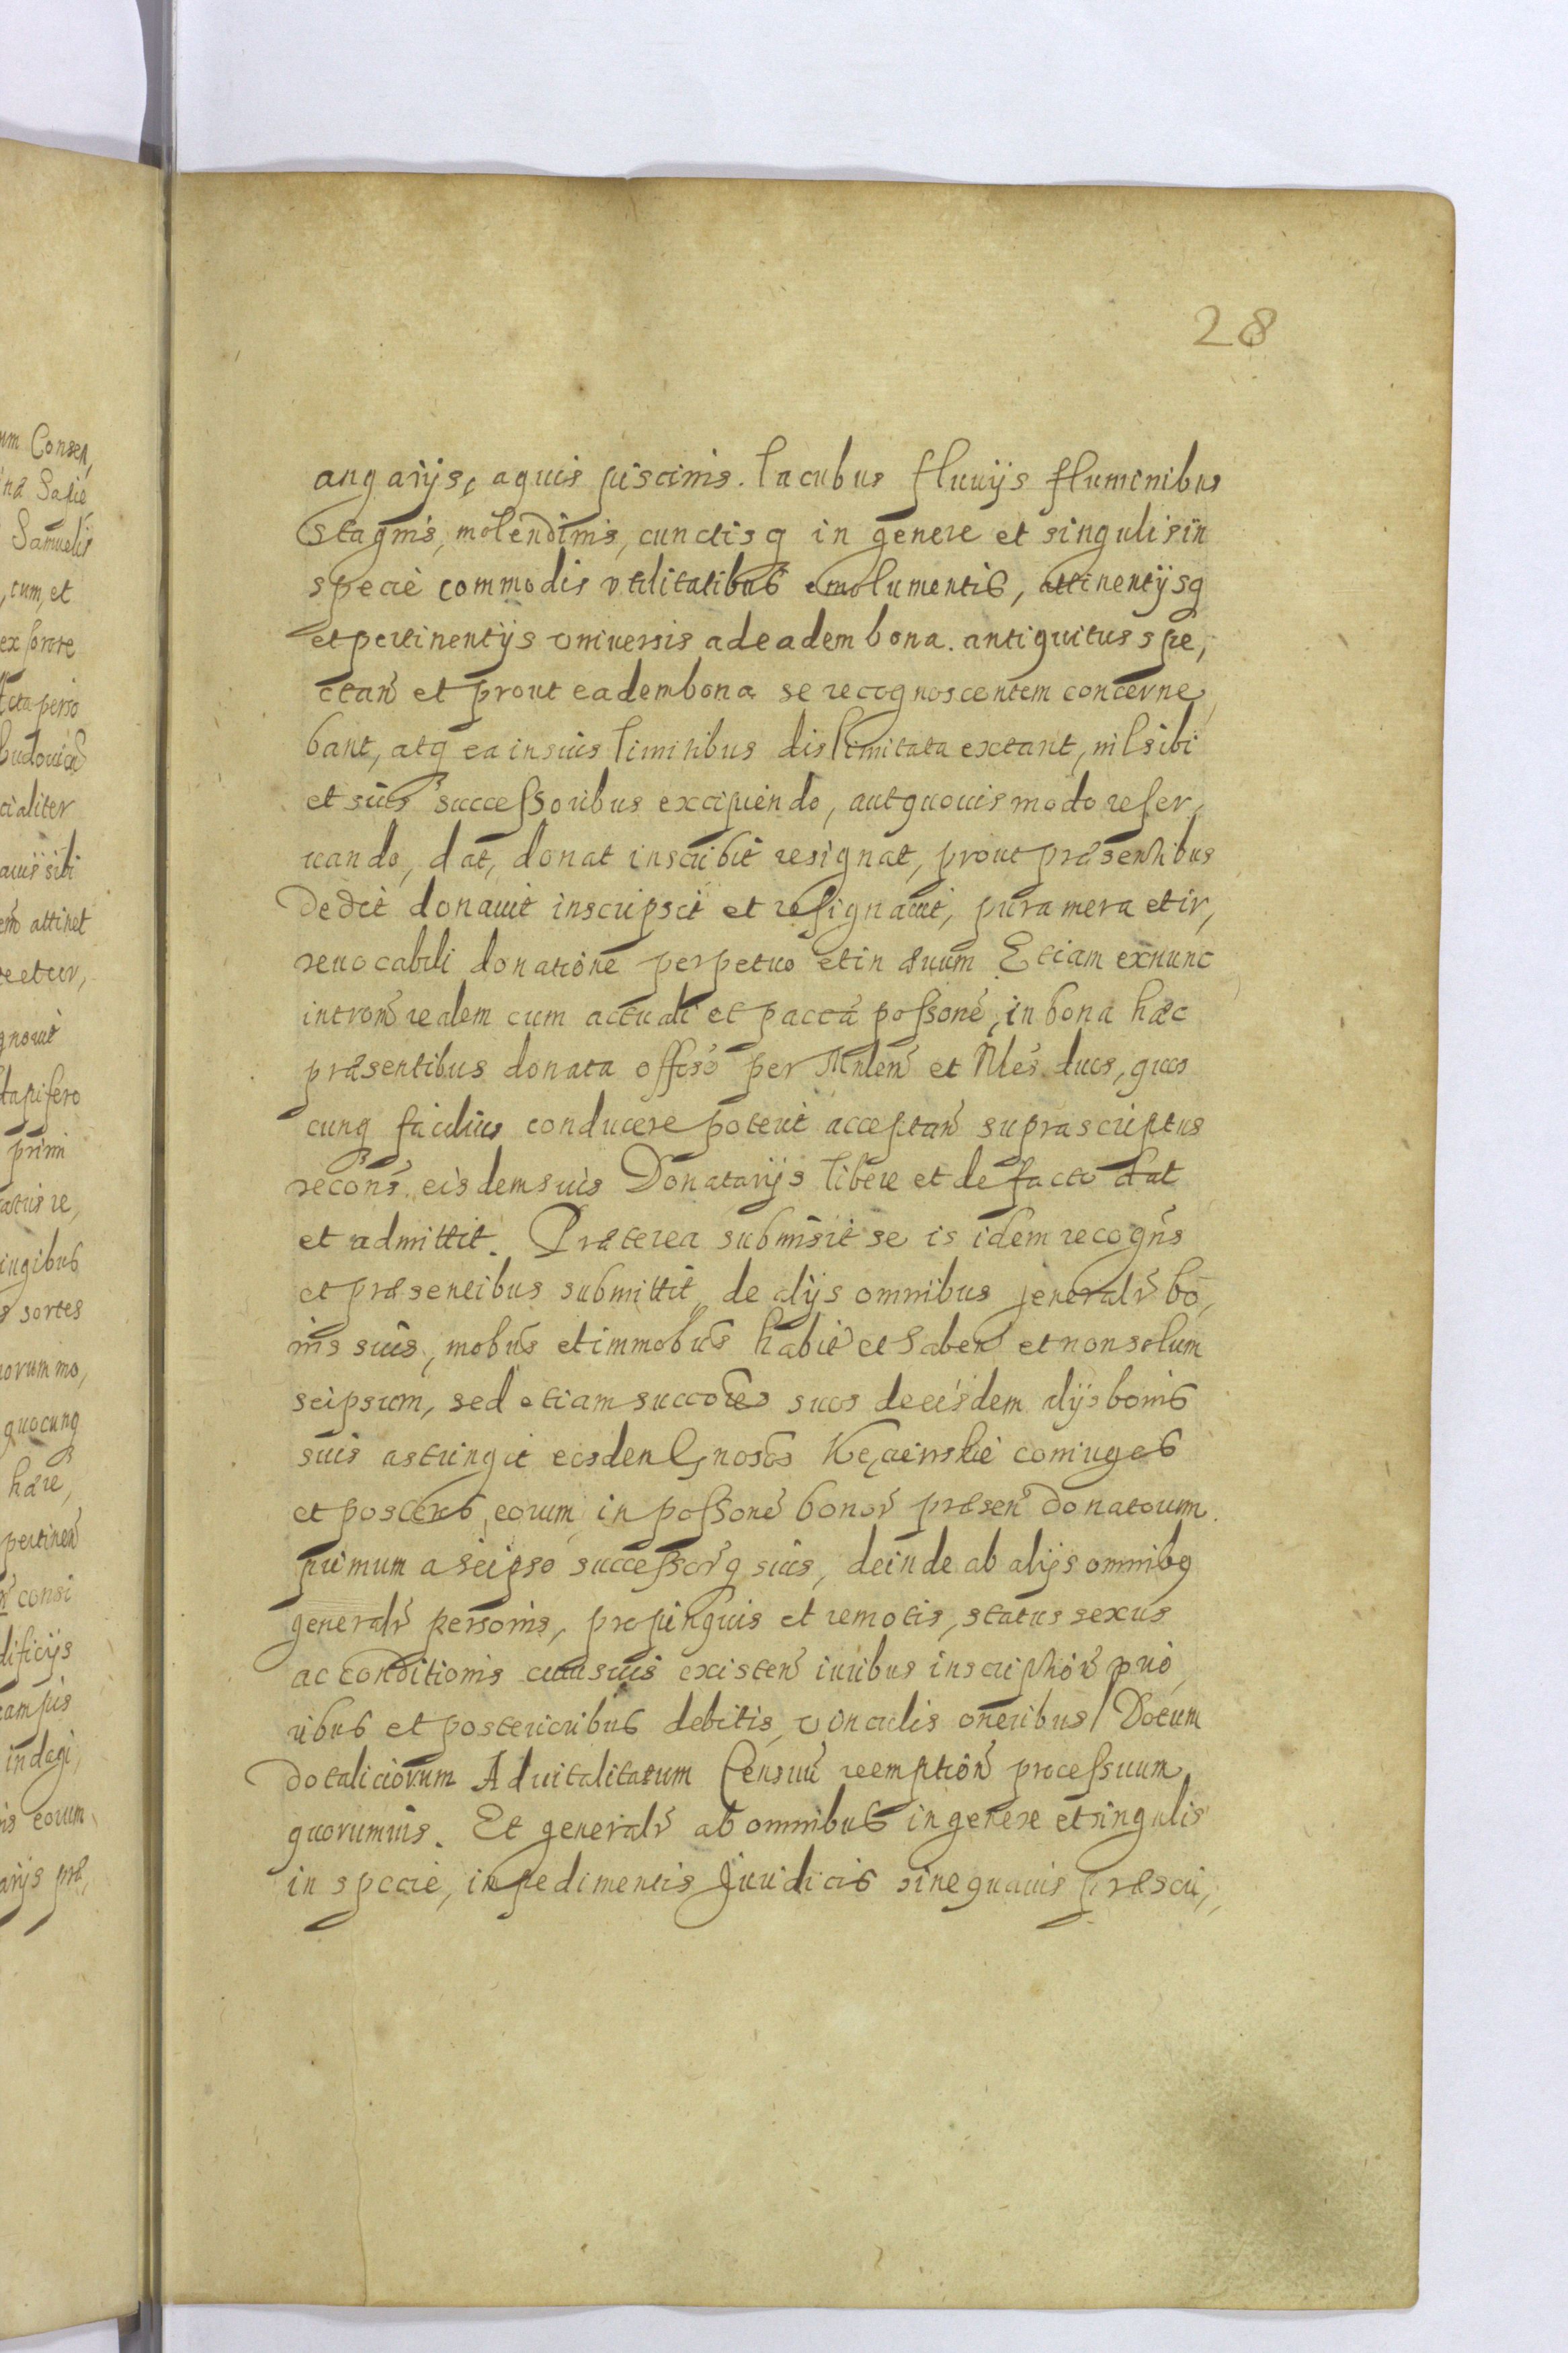 um Consen,
ina Salie
Samuelis
cum, et
ex sorore
Acta perso
Ludouica
cialiter
auis sibi
attinet
eetur,
gnouit
dapifero
primi
iugibus
sortes
uorum mo,
quocunq
hære,
pertinen
consi
dificijs
campis
indagi,
eorum
arijs præ,
28
angarijs, aquis piscinis. lacubus fluuijs fluminibus
stagnis, molendinis, cunctisq in genere et singulis in
specie commodis vtilitatibus emolumentis, attinentijsq
et pertinentijs vniuersis ad eadem bona. antiquitus spe,
ctan et prout eadem bona se recognoscentem concerne,
bant, atq ea in suis limitibus dislimitata extant, nil sibi
et suis successoribus excipiendo, aut quouis modo reser,
uando, dat, donat inscribit resignat, prout præsentibus
dedit donauit inscripsit et resignauit, pura mera et ir,
reuocabili donatione perpetuo et in æuum Etiam ex nunc
introm realem cum actuali et pacca possone, in bona hæc
præsentibus donata offiso per Mnlem et Nles duos, quos
cunq facilius conducere poterit acceptan suprascriptus
recons. eisdem suis Donatarijs libere et de facto dat
et admittit. Præterea submisit se is idem recogns
et præsentibus submittit, de alijs omnibus generalr bo,
nis suis, mobus et immobus habit et haben et non solum
seipsum, sed etiam succores suos de eisdem alijs bonis
suis astringit eisdem Gnosos Kęcienskie coniuges
et posteros eorum in possone bonor præsen donatorum.
primum a seipso successorq suis, deinde ab alijs omnibq
generalr personis, propinquis et remotis, status sexus
ac conditionis cuiusuis existen iuribus inscription prio,
ribus et posterioribus debitis, vinculis oneribus Dotum
dotaliciorum Aduitalitatum Censuu reemption processuum
quorumuis. Et generalr ab omnibus in genere et singulis
in specie, inpedimentis Juridicis sine quauis præscri,